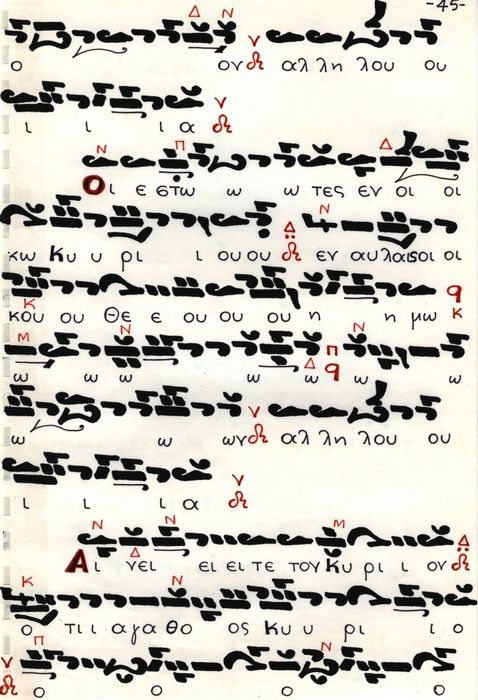 -45-
Δ Ν
ο ον αλ λη λου ου
ι ι ι α
Ν Π Δ
Οι ε στω ω ω τες εν οι οι
Ν Δ
κω Κυ υ ρι ι ου ου εν αυλαισοι οι
Κ
κου ου Θε ε ου ου ου η η μω
Μ Ν Δ Π Ν
ω ω ω ω ω ω ω
ω ω ων αλ λη λου ου
ι ι ι α
Ν Δ Ν Μ Δ
Αι νει ει ει τε τον Κυ ρι ι ον
Κ Ν
ο τι ι αγα θο ος Κυ υ ρι ι ο
Π Ν
ο ο ο ο